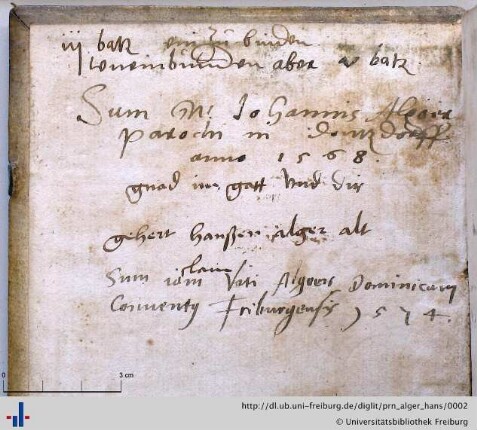 iij batz einzubinden
aber v batz
Sum M. Johannis Alger
parochi in dontzdorff
anno 1568.
gnad im gott und dir
gehert hanßen alger alt
Sum iam Viti Algers Dominicani
Conventy Friburgensis 1574.
0 3 cm
http://dl.ub.uni-freiburg.de/diglit/prn_alger_hans/0002
© Universitätsbibliothek Freiburg